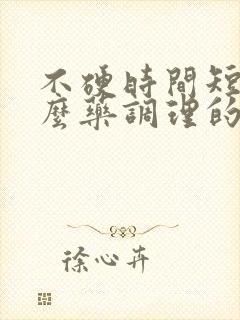 不硬時間短
麼藥調理的
徐心卉